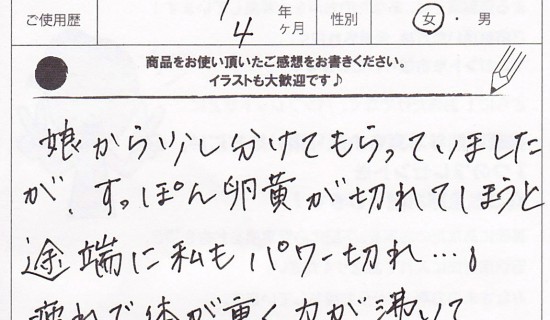 ご使用歴 4 年 ヶ月 性別 女 ・ 男
商品をお使い頂いたご感想をお書きください。
イラストも大歓迎です♪
娘から少し分けてもらっていました
が、すっぽん卵黄が切れてしまうと
途端に私もパワー切れ…。
疲れで体が重く力が沸いて